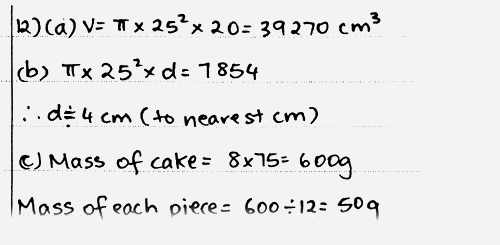 12)(a) V= π x 25² x 20= 39270 cm³
(b) π x 25² x d= 7854
∴ d≑ 4 cm (to nearest cm)
(c) Mass of cake= 8x75= 600g
Mass of each piece= 600÷12= 50g